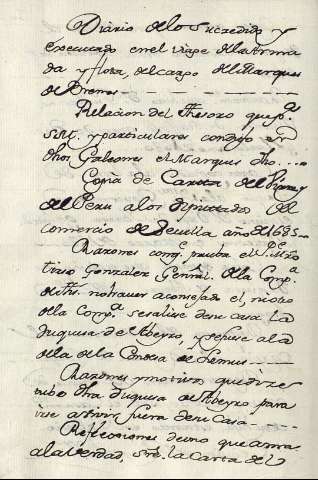 Diario de lo Sucedido y
executado en el viaje de la Arma
da y flota, del cargo del Marques
de Brenes
Relacion del thesoro que pª.
S.M. y particulares condujo en
dhos Galeones el Marques dho....
Copia de Carta del Virrey
del Peru a los diputados del
comercio de Sevilla año de 1685
Razones con q.e prueba el P.e Mro
tirso Gonzalez Genrãl. de la Comp.ª
de Ihs. no haver aconsejado el, ni otro
de la Comp.ª se saliese de su casa la
Duquesa de Abeyro, y se fuese a la
de la de la Condesa de Lemus
Razones y motivos que dize
tubo dha Duquesa de Abeyro para
irse a vivir fuera de su Casa
Reflecciones de uno que ama
a la Verdad, sre. la Carta del